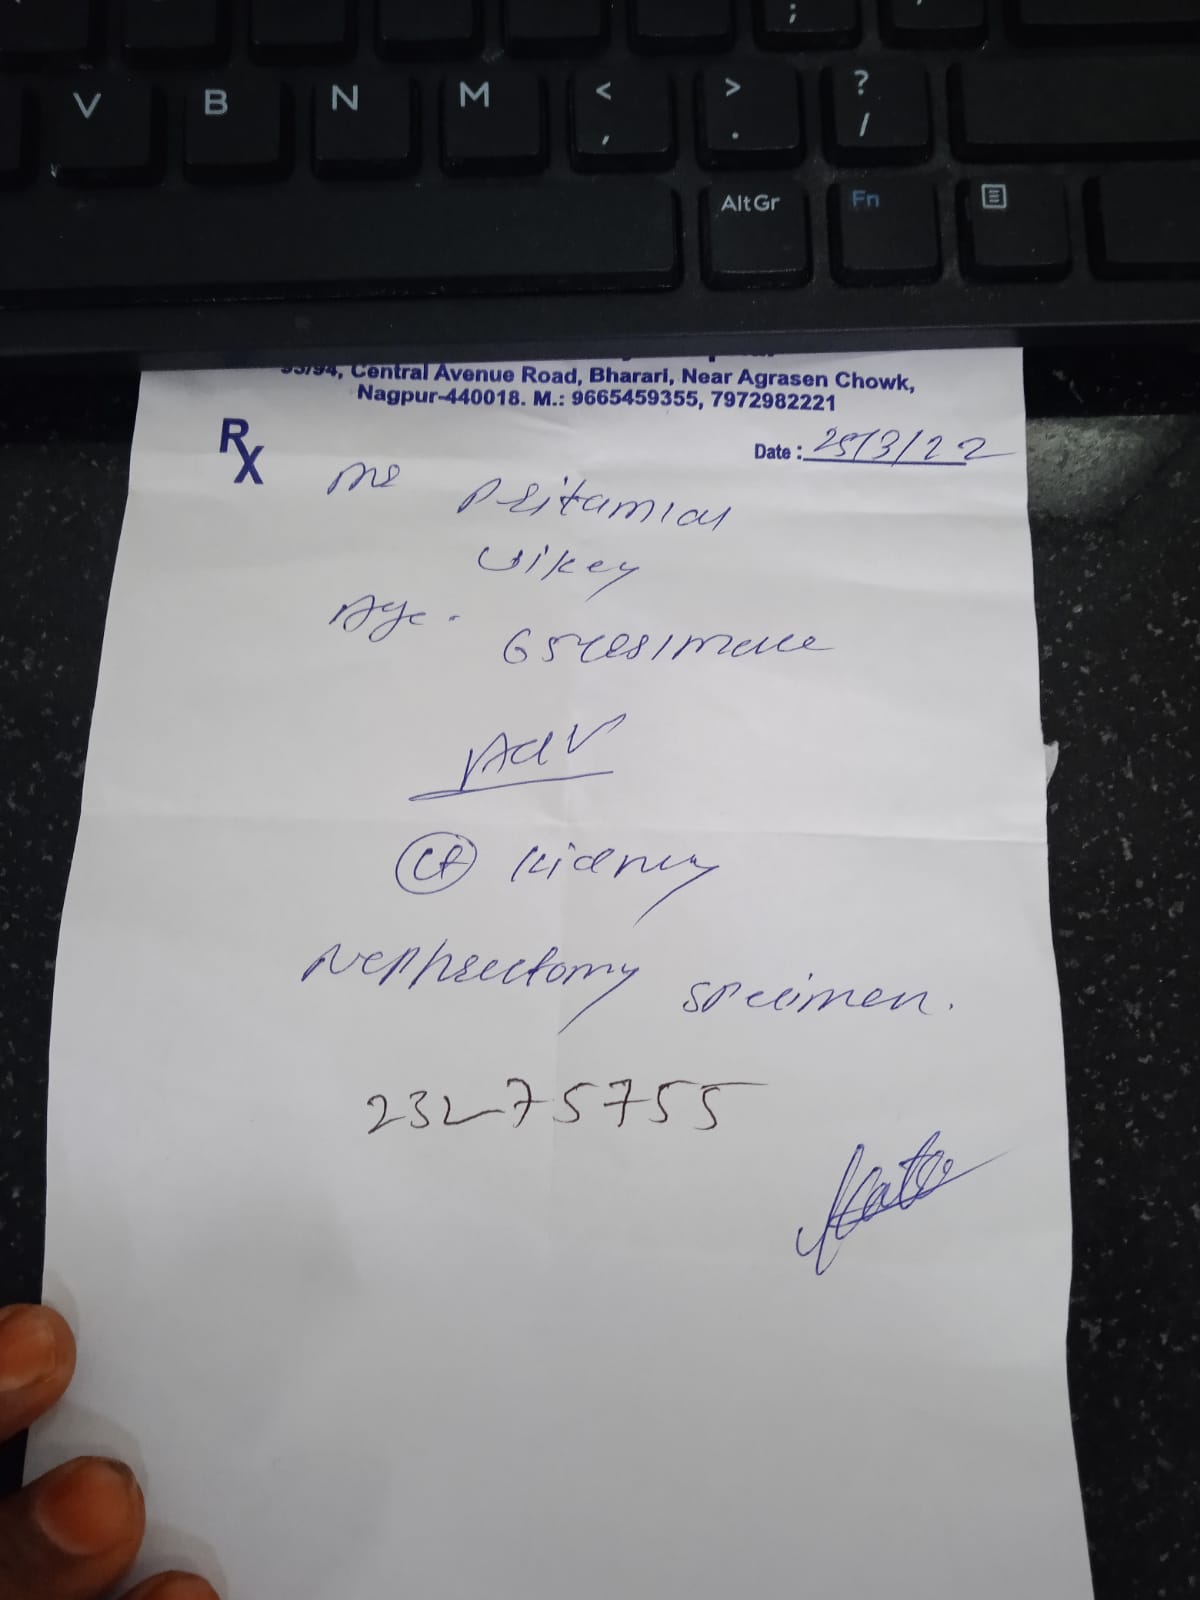 ;
V B N M < , > . ? /
AltGr Fn
93/94, Central Avenue Road, Bharari, Near Agrasen Chowk,
Nagpur-440018. M.: 9665459355, 7972982221
Rx
Date : 25/3/22
Mr Pritamlal
Uikey
Age. 65yrs/male
Adv
Lt Kidney
Nephrectomy specimen.
23275755